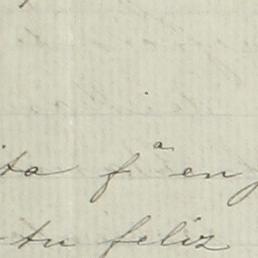 ita fª en
tu feliz